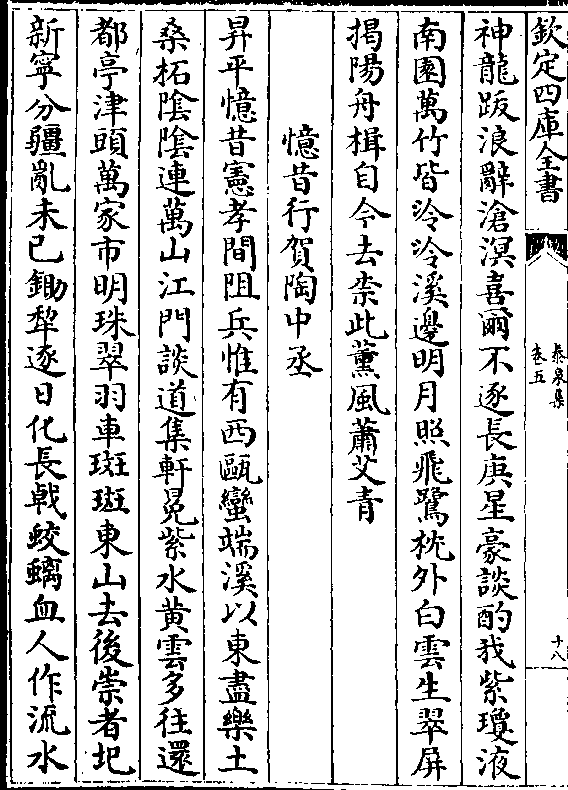 欽定四庫全書
泰泉集
卷五
十八
神龍跋浪辭滄溟喜爾不逐長庚星豪談酌我紫瓊液
南園萬竹皆泠泠溪邊明月照飛鷺枕外白雲生翠屏
揭陽舟楫自今去柰此薰風蕭艾青
憶昔行賀陶中丞
昇平憶昔憲孝間阻兵惟有西甌蠻端溪以東盡樂土
桑柘陰陰連萬山江門談道集軒冕紫水黄雲多往還
都亭津頭萬家市明珠翠羽車斑斑東山去後崇者圯
新寧分疆亂未已鋤犂逐日化長戟蛟螭血人作流水